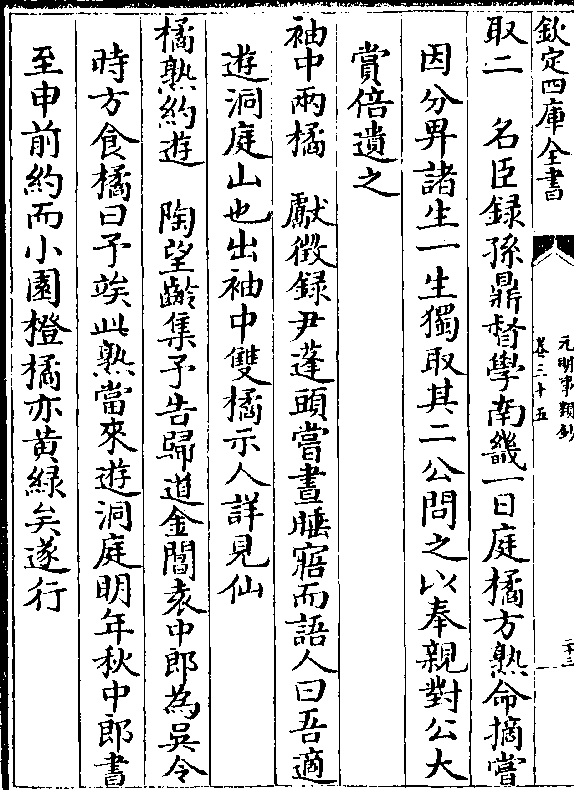 欽定四庫全書
元明事類鈔
卷三十五
二十三
取二　名臣録孫鼎督學南畿一日庭橘方熟命摘嘗
因分畀諸生一生獨取其二公問之以奉親對公大
賞倍遺之
袖中兩橘　獻徴録尹蓬頭嘗晝睡寤而語人曰吾適
遊洞庭山也出袖中雙橘示人詳見仙
橘熟約遊　陶望齡集予告歸道金閶袁中郎為吳令
時方食橘曰予竢此熟當來遊洞庭明年秋中郎書
至申前約而小園橙橘亦黄緑矣遂行